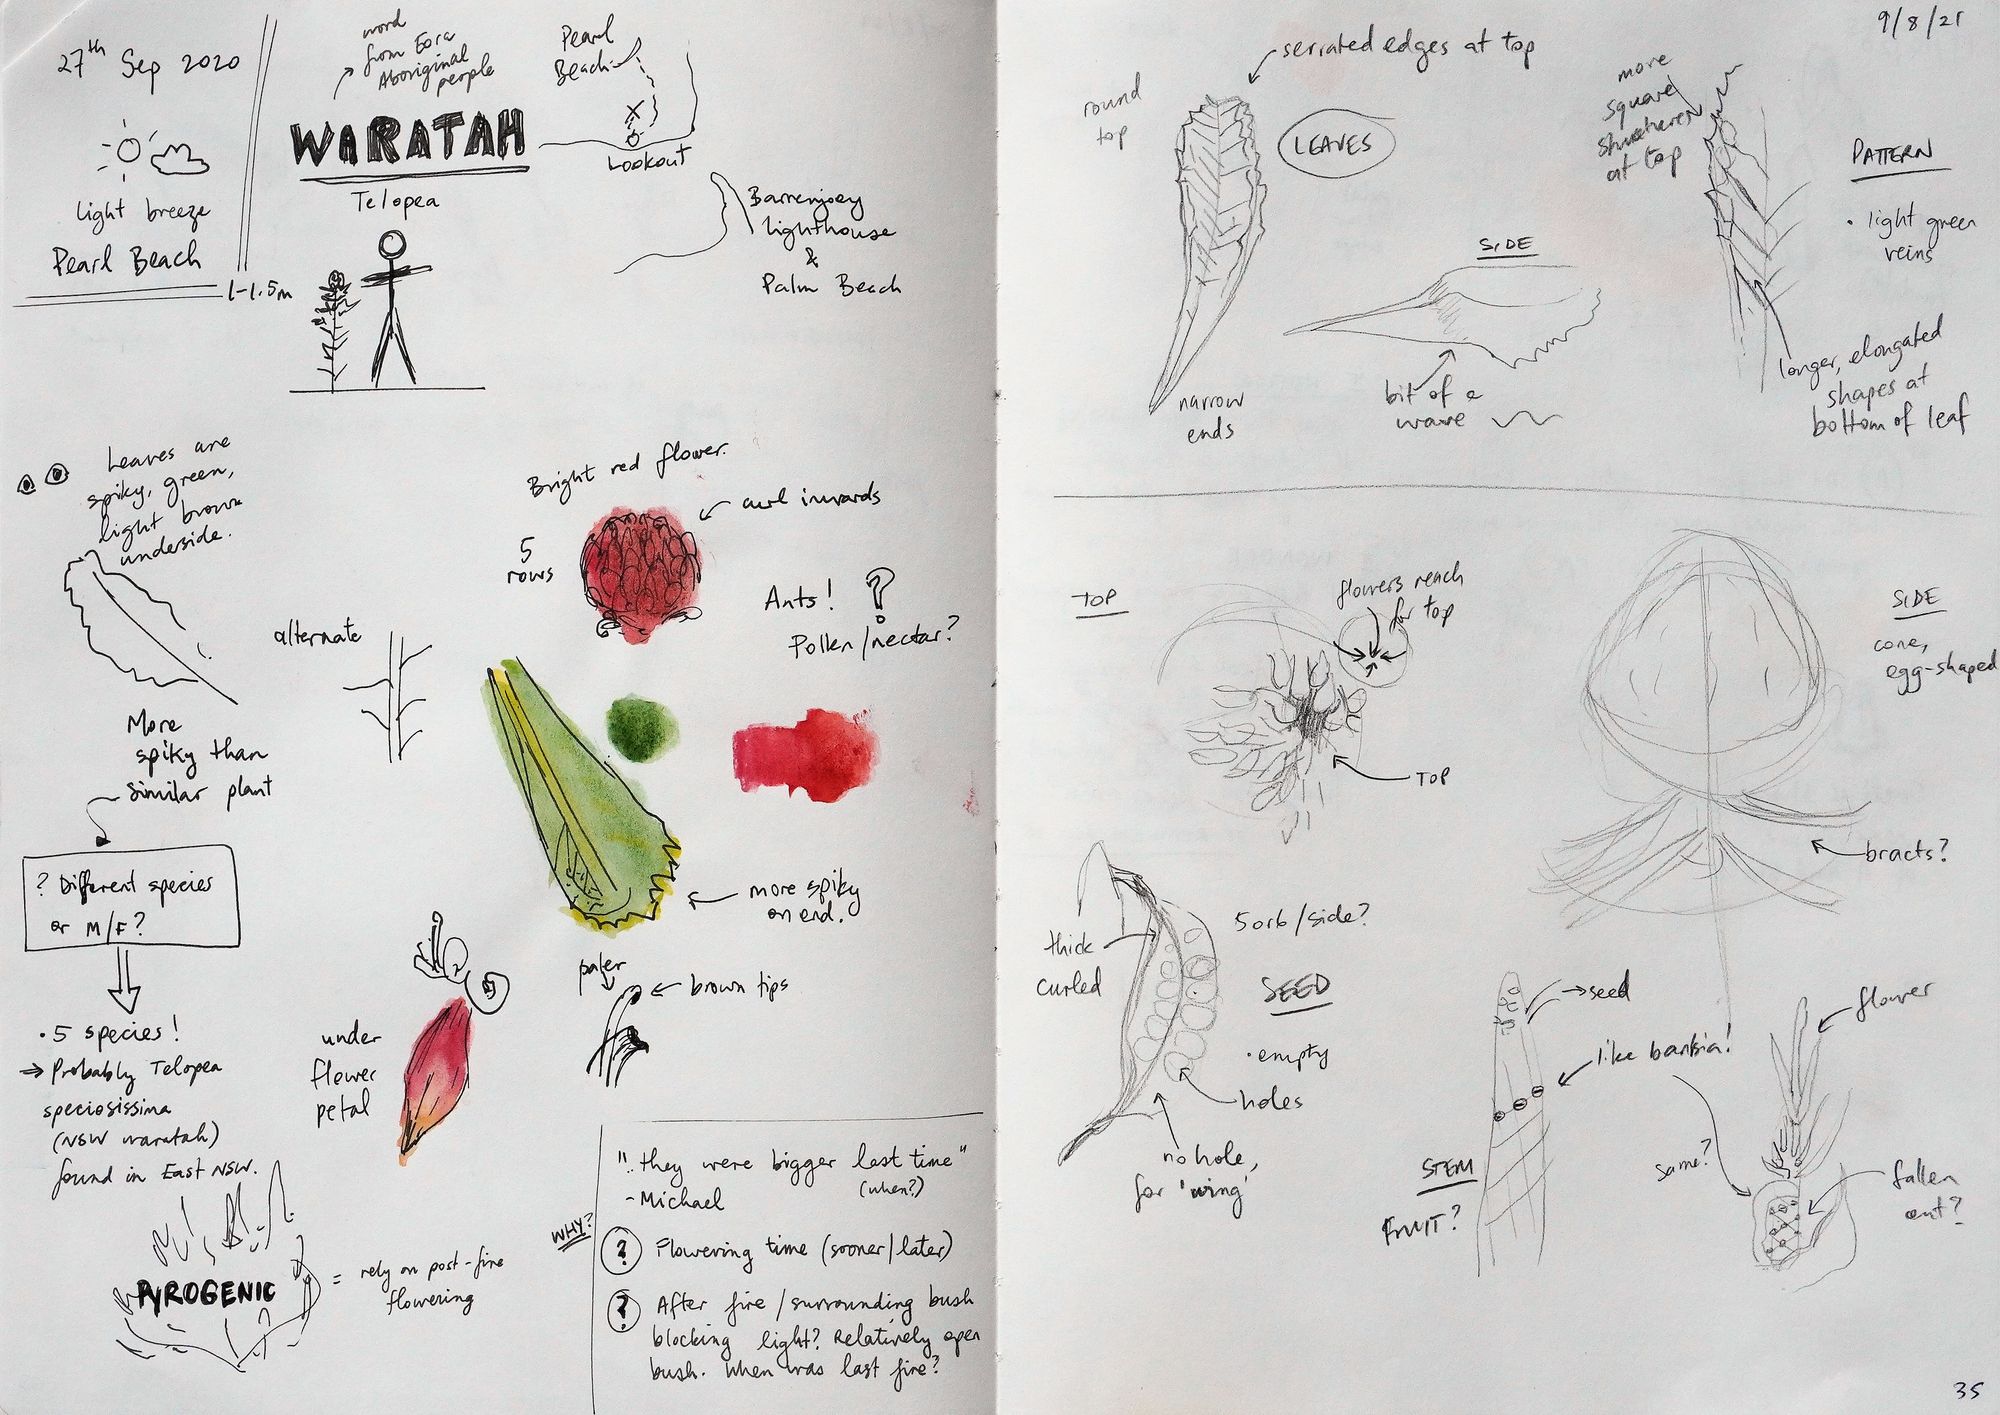 27th Sep 2020
light breeze
Pearl Beach
word
from Eora
Aboriginal
people
WARATAH
Telopea
1-1.5m
Pearl
Beach
Lookout
Barrenjoey
lighthouse
&
Palm Beach
Leaves are
spiky, green,
light brown
underside.
alternate
More
spiky than
similar plant
? Different species
or M/F?
• 5 species!
→ Probably Telopea
speciosissima
(NSW waratah)
found in East NSW.
PYROGENIC
= rely on post-fire
flowering
Bright red flower.
curl inwards
5
rows
Ants! ?
Pollen/nectar?
more spiky
on end.
under
flower
petal
paler
brown tips
"..they were bigger last time"
(when?)
-Michael
WHY?
? Flowering time (sooner/later)
? After fire/surrounding bush
blocking light? Relatively open
bush. When was last fire?
9/8/21
serrated edges at top
round
top
LEAVES
narrow
ends
SIDE
bit of a
wave
more
square
at top
PATTERN
• light green
veins
longer, elongated
shapes at
bottom of leaf
TOP
flowers reach
for top
TOP
SIDE
cone,
egg-shaped
bracts?
thick
curled
5 orb/side?
SEED
• empty
holes
no hole,
for 'wing'
→seed
like banksia!
STEM
FRUIT?
flower
same?
fallen
out?
35